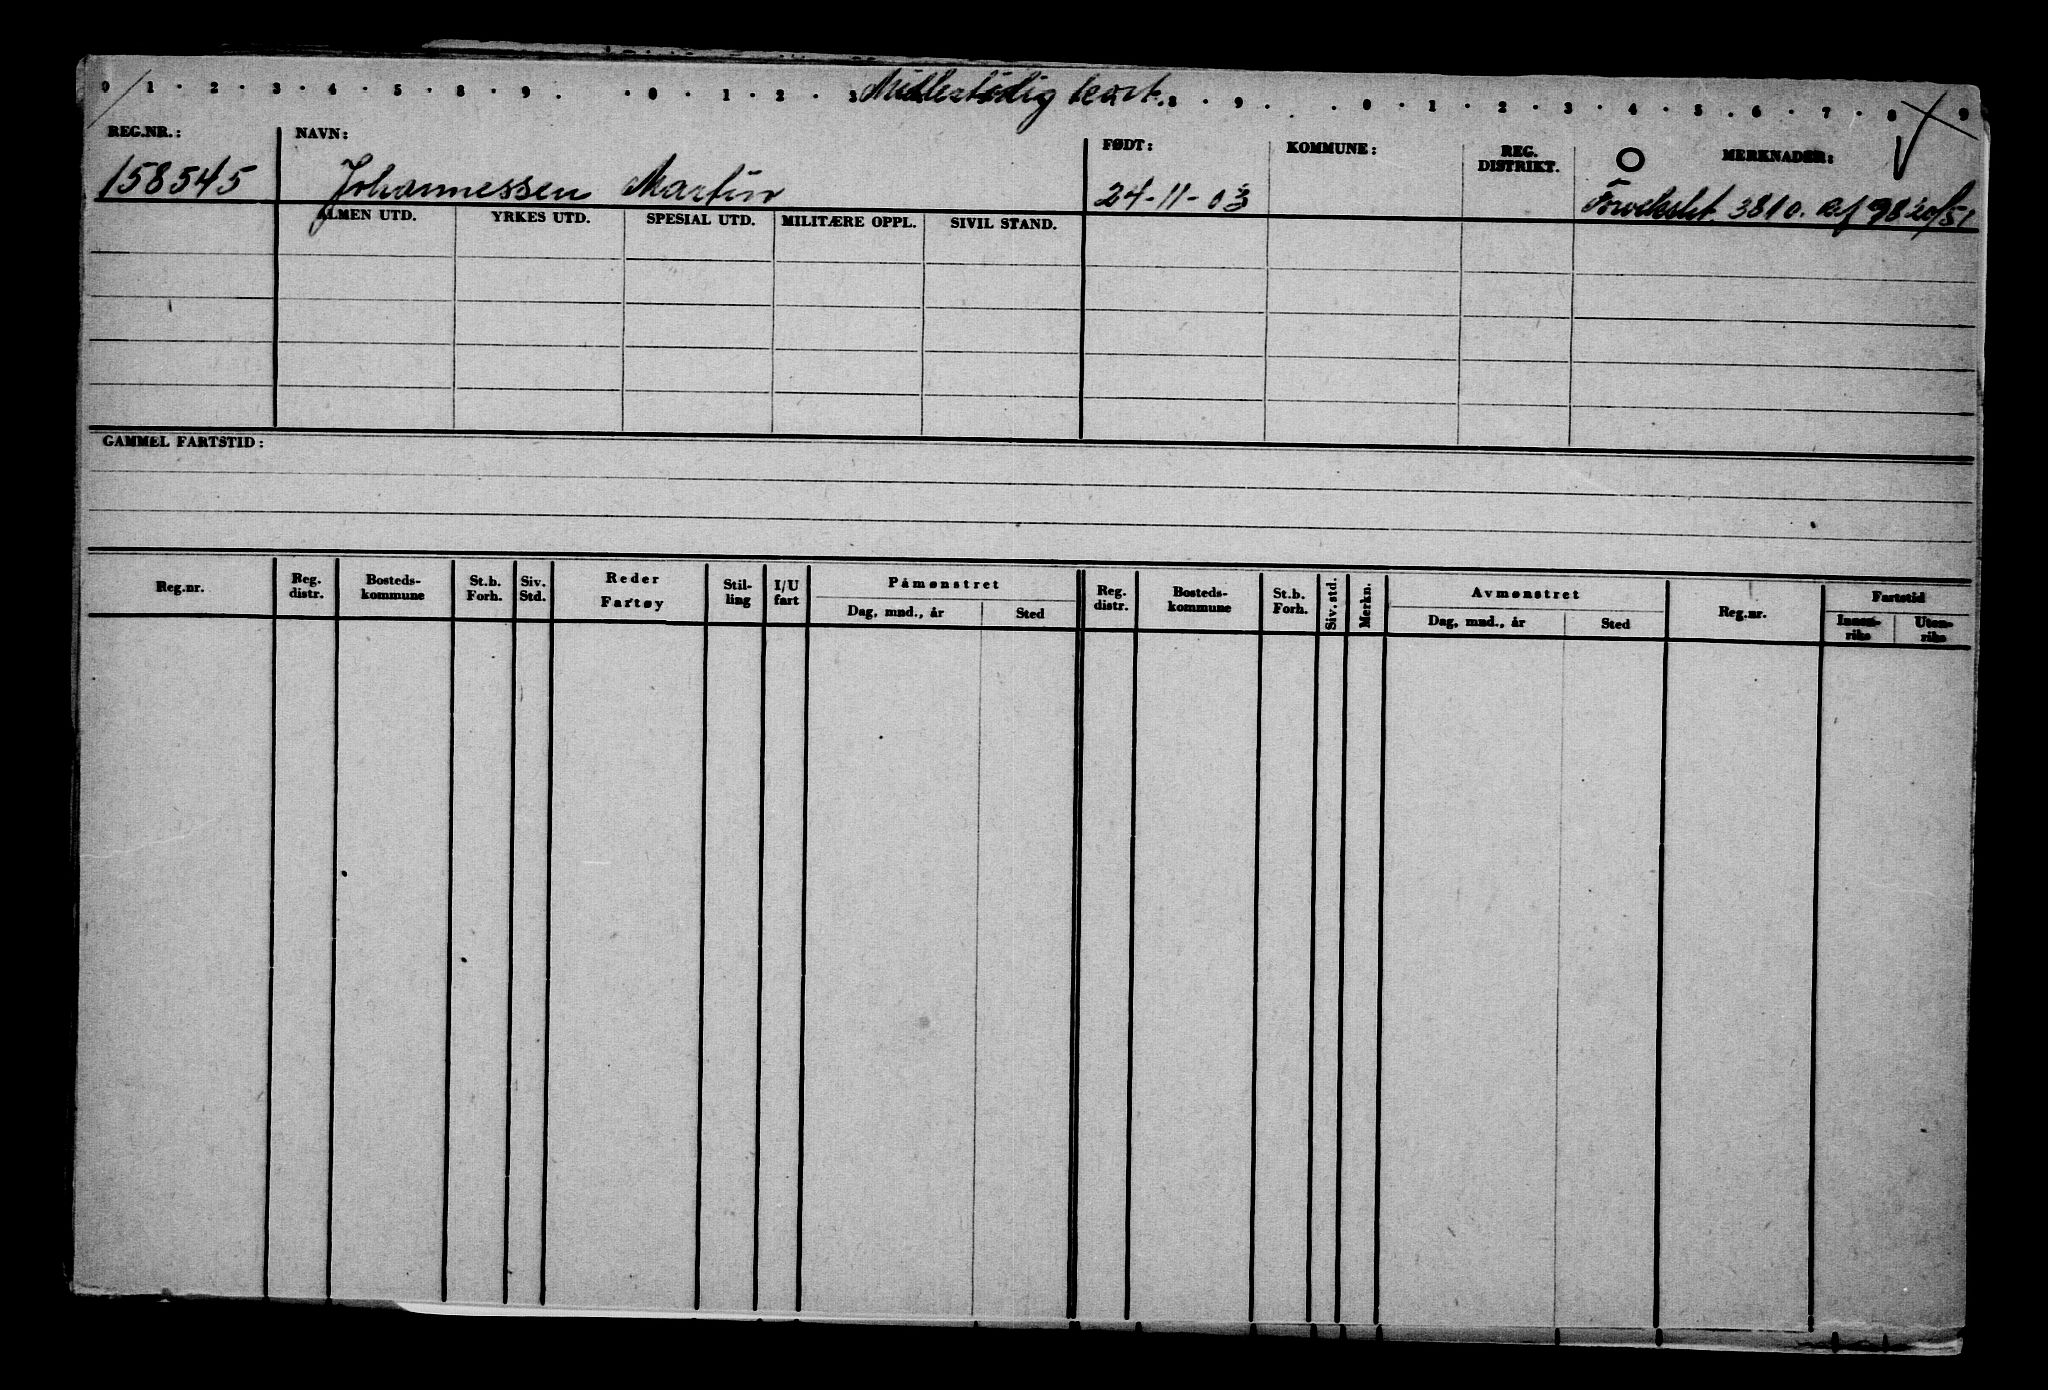 0 1 · 2 · 3 · 4 · 5 · 8 · 9 . · 0 · 1 · 2 · 3 Midlertidig kort. 8 · 9 . . 0 · 1 · 2 · 3 · 4 · 5 . 6 · 7 · 8 9
REG.NR.: NAVN: FØDT: KOMMUNE: REG. DISTRIKT. MERKNADER:
158545 Johannessen Martin 24-11-03 3810. 98 20/51
ALMEN UTD. YRKES UTD. SPESIAL UTD. MILITÆRE OPPL. SIVIL STAND.
GAMMEL FARTSTID:
Reg.nr. Reg. distr. Bosteds- kommune St.b. Forh. Siv. Std. Reder Fartøy Stil- ling I/U fart Påmønstret Reg. distr. Bosteds- kommune St.b. Forh. Siv. std. Merkn. Avmønstret Reg.nr. Fartstid
Dag, mnd., år Sted Dag, mnd., år Sted Innen- riks Uten- riks